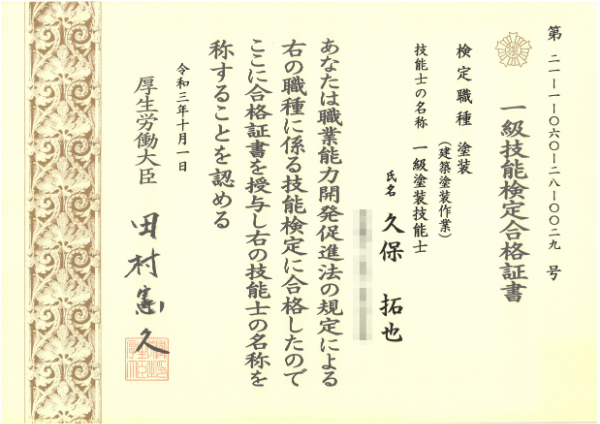 第二一ー一ー〇六〇ー二八ー〇〇二九号
一級技能検定合格証書
検定職種 塗装
(建築塗装作業)
技能士の名称 一級塗装技能士
氏名 久保 拓也
あなたは職業能力開発促進法の規定による
右の職種に係る技能検定に合格したので
ここに合格証書を授与し右の技能士の名称を
称することを認める
令和三年十月一日
厚生労働大臣 田村憲久